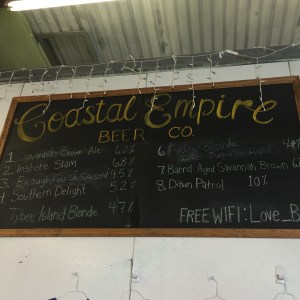 Coastal Empire
BEER CO.
1 Savannah Brown Ale 6.2%
2. Inshore Slam 6.8%
3. 4.5%
4 Southern Delight 5.2%
Tybee Island Blonde 4.7%
6
7 Barrel Aged Savannah Brown
8 Dawn Patrol 10%
FREE WIFI: Love_B